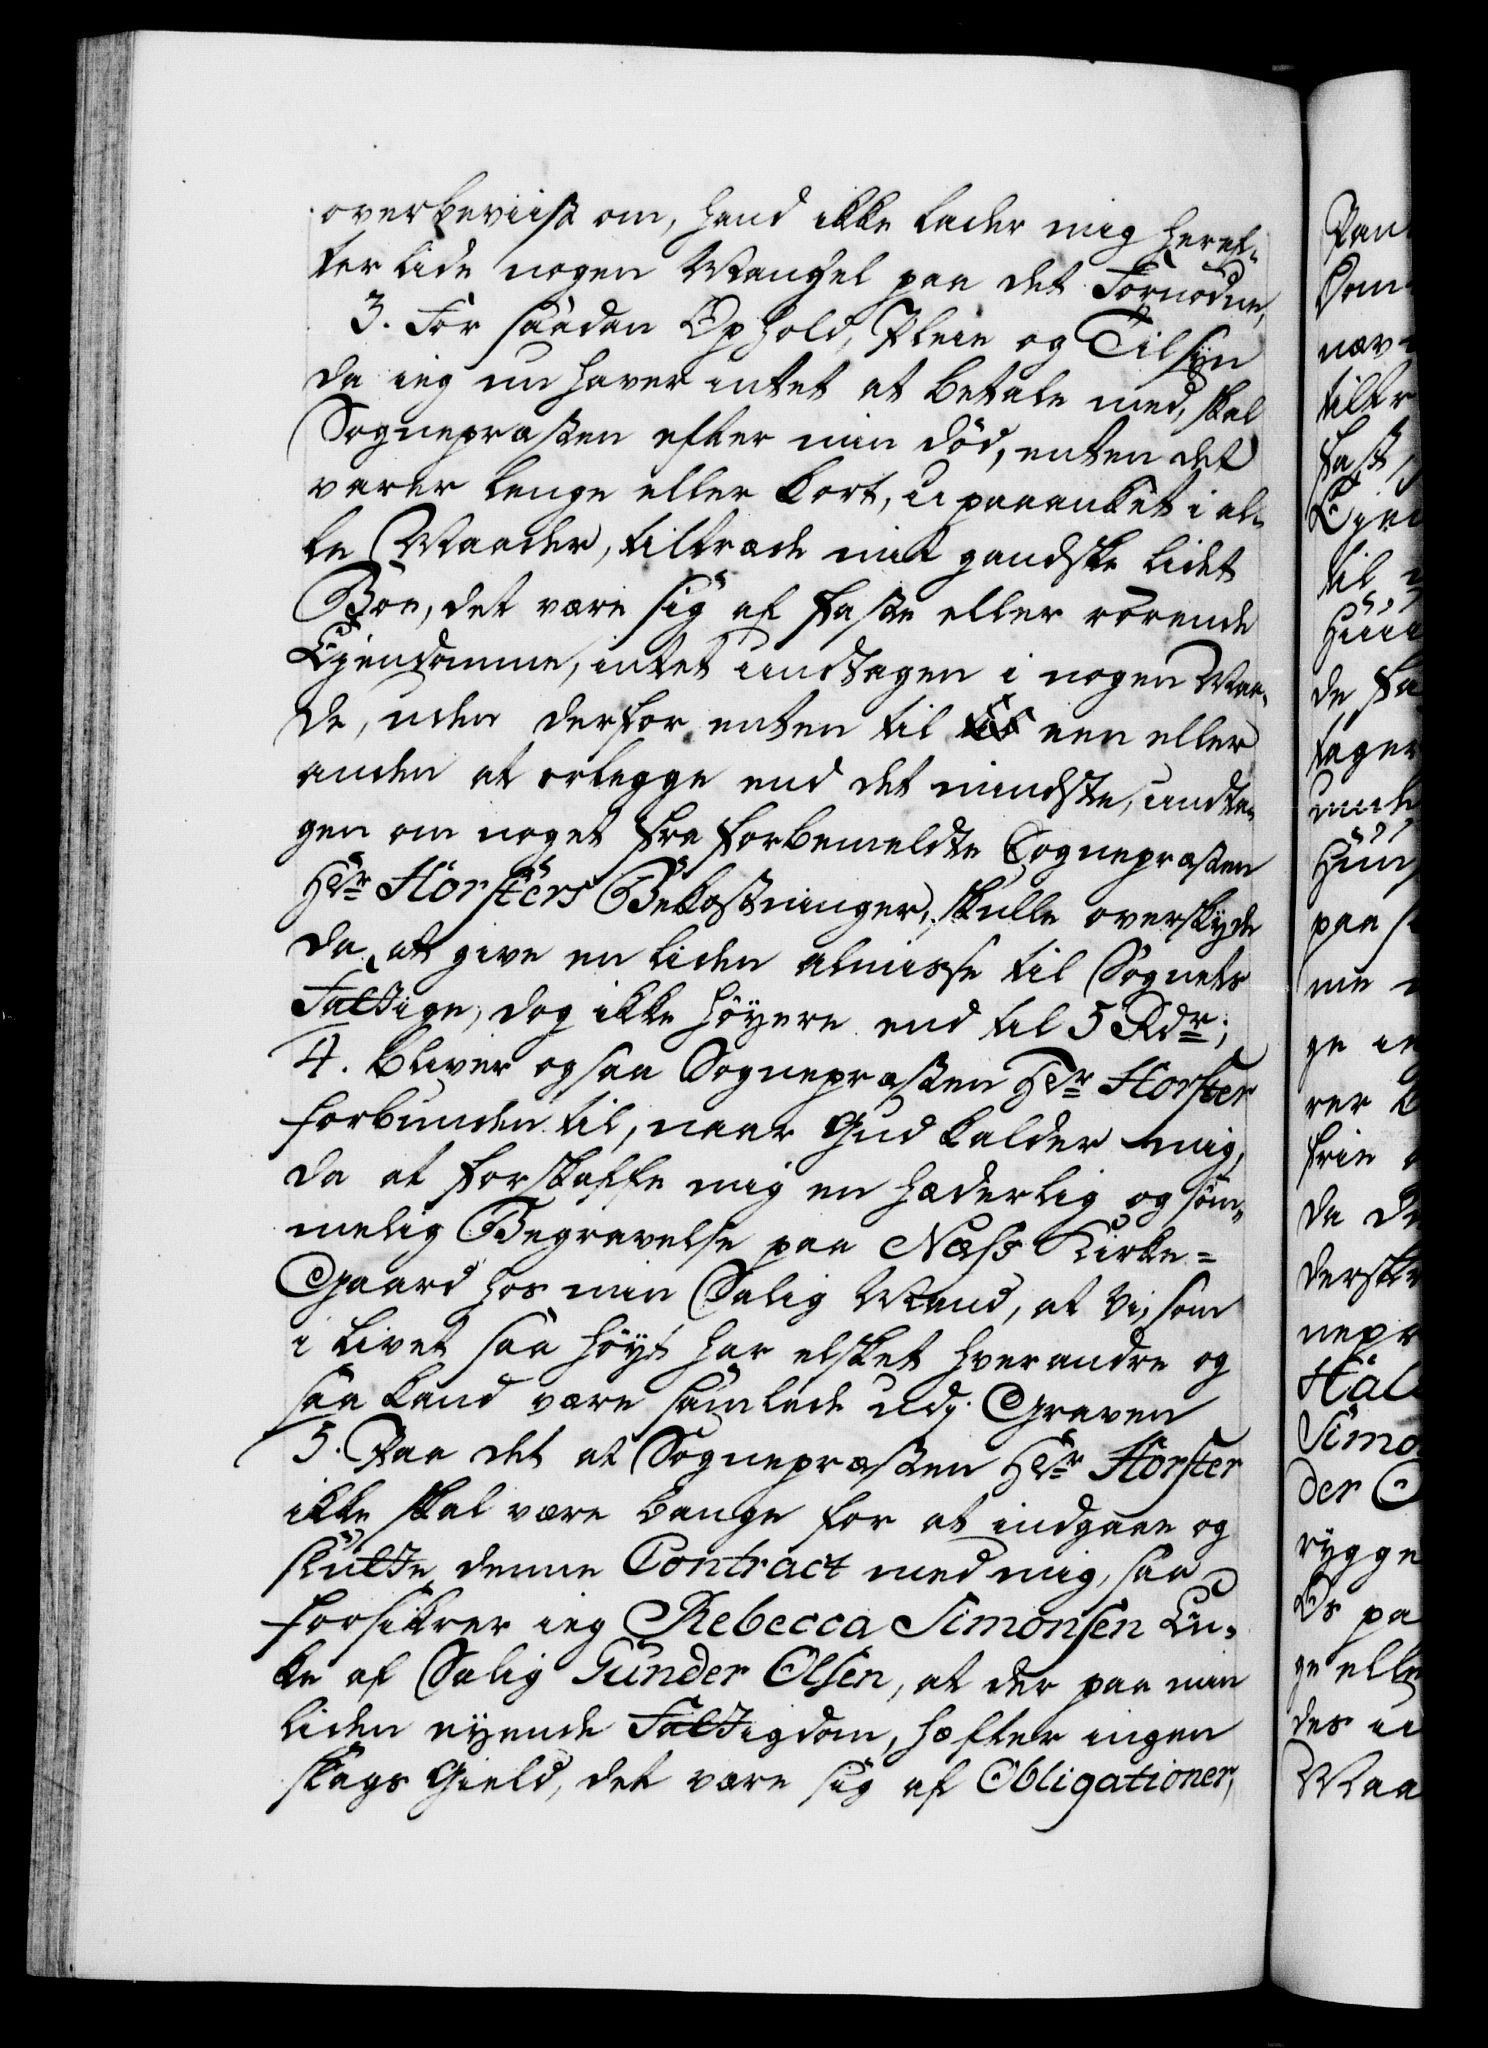 overbeviist om, hand ikke lader mig heref-
ter lide nogen Mangel paa det Fornødne,
3. For saadan Ophold, Pleie og Tilsyn
da ieg nu haver intet at betale med, skal
Sognepræsten efter min død, enten det
varer lenge eller kort, upaaanket i al-
le Maader, tiltræde mit gandske lidet
Boe, det være sig af faste eller rørende
Ejendomme, intet undtagen i nogen Maa-
de, uden derfor enten til een eller
anden at erlegge end det mindste, undta-
gen om noget fra forbemeldte Sognepræsten
Hr Horsters Bekostninger, skulle overskyde
da at give en liden almisse til Sognets
Fattige, dog ikke høyere end til 5 Rdr;
4. bliver ogsaa Sognepræsten Hr Horster
forbunden til, naar Gud kalder mig,
da at forskaffe mig en hæderlig og søm-
melig Begravelse paa Næss Kirke=
Gaard hos min Salig Mand, at vi, som
i livet saa høyt har elsket hverandre og
saa kand være samlede udj Graven
5. Paa det at Sognepræsten Hr Horster
ikke skal være bange for at indgaae og
slutte denne Contract med mig, saa
forsikrer ieg Rebecca Simonsen En-
ke af Salig Gunder Olsen, at der paa min
liden eyende Fattigdom, hæfter ingen
slags Gield, det være sig af Obligationer,